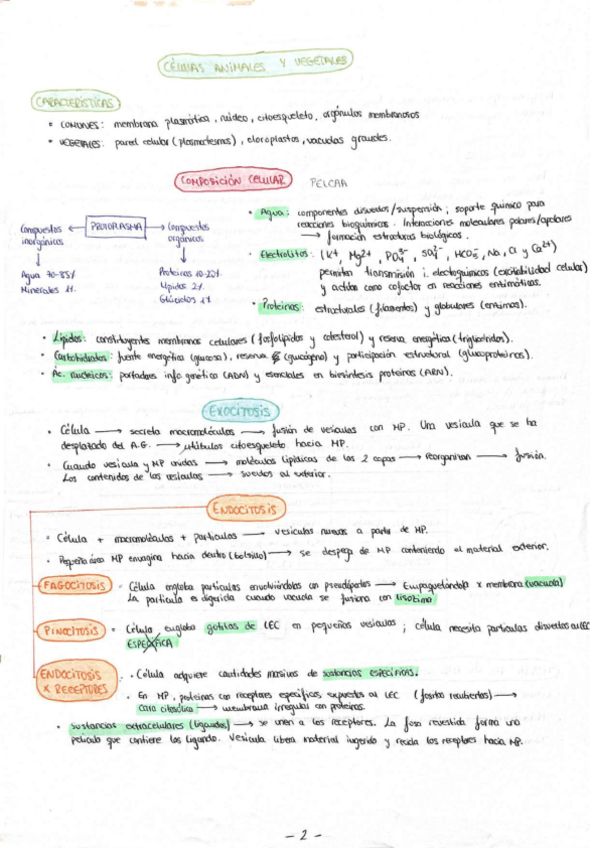 CÉLULAS ANIMALES Y VEGETALES
CARACTERÍSTICAS
• COMUNES: membrana plasmática, núcleo, citoesqueleto, orgánulos membranosos
• VEGETALES: pared celular (plasmodesmos), cloroplastos, vacuolas grandes.
COMPOSICIÓN CELULAR PELCAA
Compuestos inorgánicos ← PROTOPLASMA → Compuestos orgánicos
Agua 70-85%
Minerales 1%
Proteínas 10-20%
Lípidos 2%
Glúcidos 1%
• Agua: componentes disueltos/suspensión; soporte químico para
reacciones bioquímicas. Interacciones moleculares polares/apolares
→ formación estructuras biológicas.
• Electrolitos: (K+, Mg2+, PO4 3-, SO4 2-, HCO3-, Na, Cl y Ca2+)
permiten transmisión i. electroquímicos (excitabilidad celular)
y actúan como cofactor en reacciones enzimáticas.
• Proteínas: estructurales (filamentos) y globulares (enzimas).
• Lípidos: constituyentes membranas celulares (fosfolípidos y colesterol) y reserva energética (triglicéridos).
• Carbohidratos: fuente energética (glucosa), reserva (glucógeno) y participación estructural (glucoproteínas).
• Ac. nucleicos: portadores info genética (ADN) y esenciales en biosíntesis proteínas (ARN).
EXOCITOSIS
• Célula → secreta macromoléculas → fusión de vesículas con MP. Una vesícula que se ha
desplazado del A.G. → túbulos citoesqueleto hacia MP.
• Cuando vesícula y MP unidas → moléculas lipídicas de las 2 capas → reorganizan → fusión.
Los contenidos de las vesículas → sueltos al exterior.
ENDOCITOSIS
• Célula + macromoléculas + partículas → vesículas nuevas a partir de MP.
• Pequeña área MP envagina hacia dentro (bolsillo) → se despega de MP conteniendo el material exterior.
FAGOCITOSIS
• Célula engloba partículas envolviéndolas con pseudópodos → Empaquetándola x membrana (vacuola)
La partícula es digerida cuando vacuola se fusiona con lisosoma
PINOCITOSIS
• Célula engloba gotitas de LEC en pequeñas vesículas; célula necesita partículas disueltas al LEC
ESPECÍFICA
ENDOCITOSIS
X RECEPTORES
• Célula adquiere cantidades masivas de sustancias específicas.
• En MP, proteínas con receptores específicos expuestos al LEC (fositas recubiertas) →
cara citosólica → membrana irregular con proteínas.
• Sustancias extracelulares (ligandos) → se unen a los receptores. La fosa revestida forma una
película que contiene los ligando. Vesícula libera material ingerido y recicla los receptores hacia MP.
- 2 -